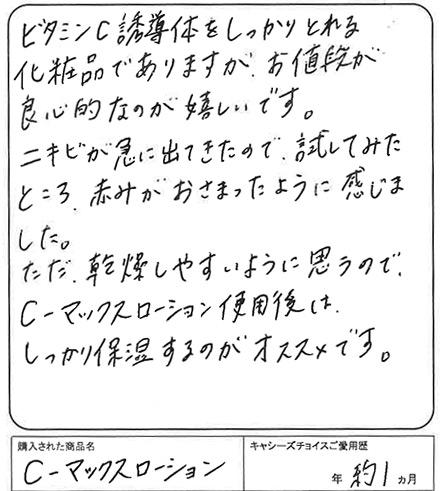 ビタミンC誘導体をしっかりとれる
化粧品でありますが、お値段が
良心的なのが嬉しいです。
ニキビが急に出てきたので、試してみた
ところ、赤みがおさまったように感じま
した。
ただ、乾燥しやすいように思うので、
C-マックスローション使用後は、
しっかり保湿するのがオススメです。
購入された商品名
C-マックスローション
キャシーズチョイスご愛用歴
年 約1ヵ月